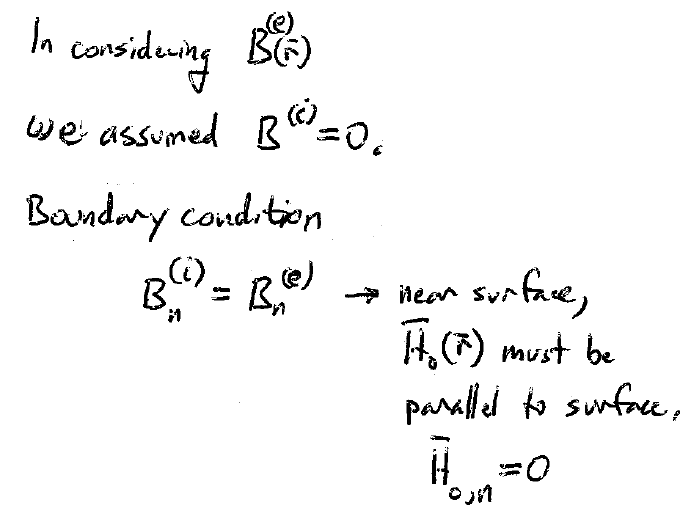 In considering B^(e)(r̄)
we assumed B^(i)=0.
Boundary condition
B_n^(i) = B_n^(e) → near surface,
H̄_0(r̄) must be
parallel to surface.
H̄_0,n =0